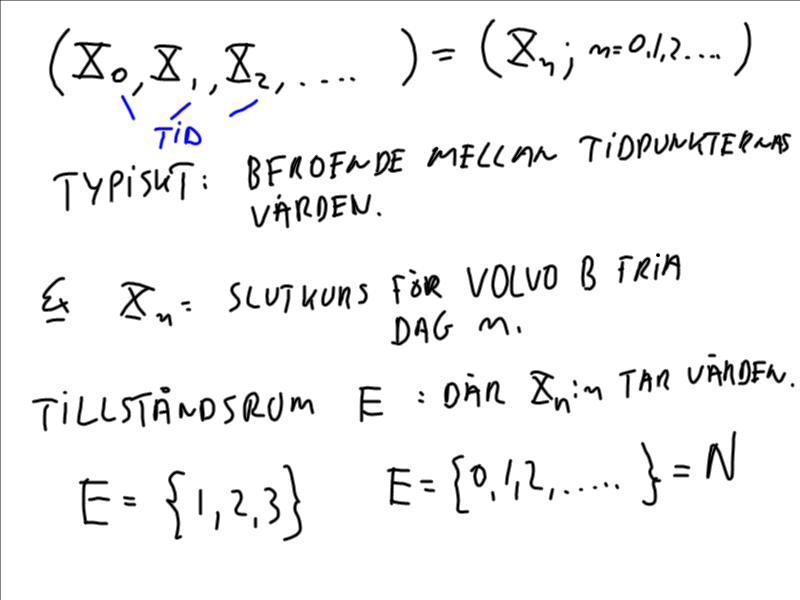 (X₀, X₁, X₂, ....) = (Xₙ; n=0,1,2....)
TID
TYPISKT: BEROENDE MELLAN TIDPUNKTERNAS
VÄRDEN.
Ex Xₙ = SLUTKURS FÖR VOLVO B FRIA
DAG n.
TILLSTÅNDSRUM E : DÄR Xₙ:n TAR VÄRDEN.
E = {1,2,3} E = {0,1,2,.....} = N